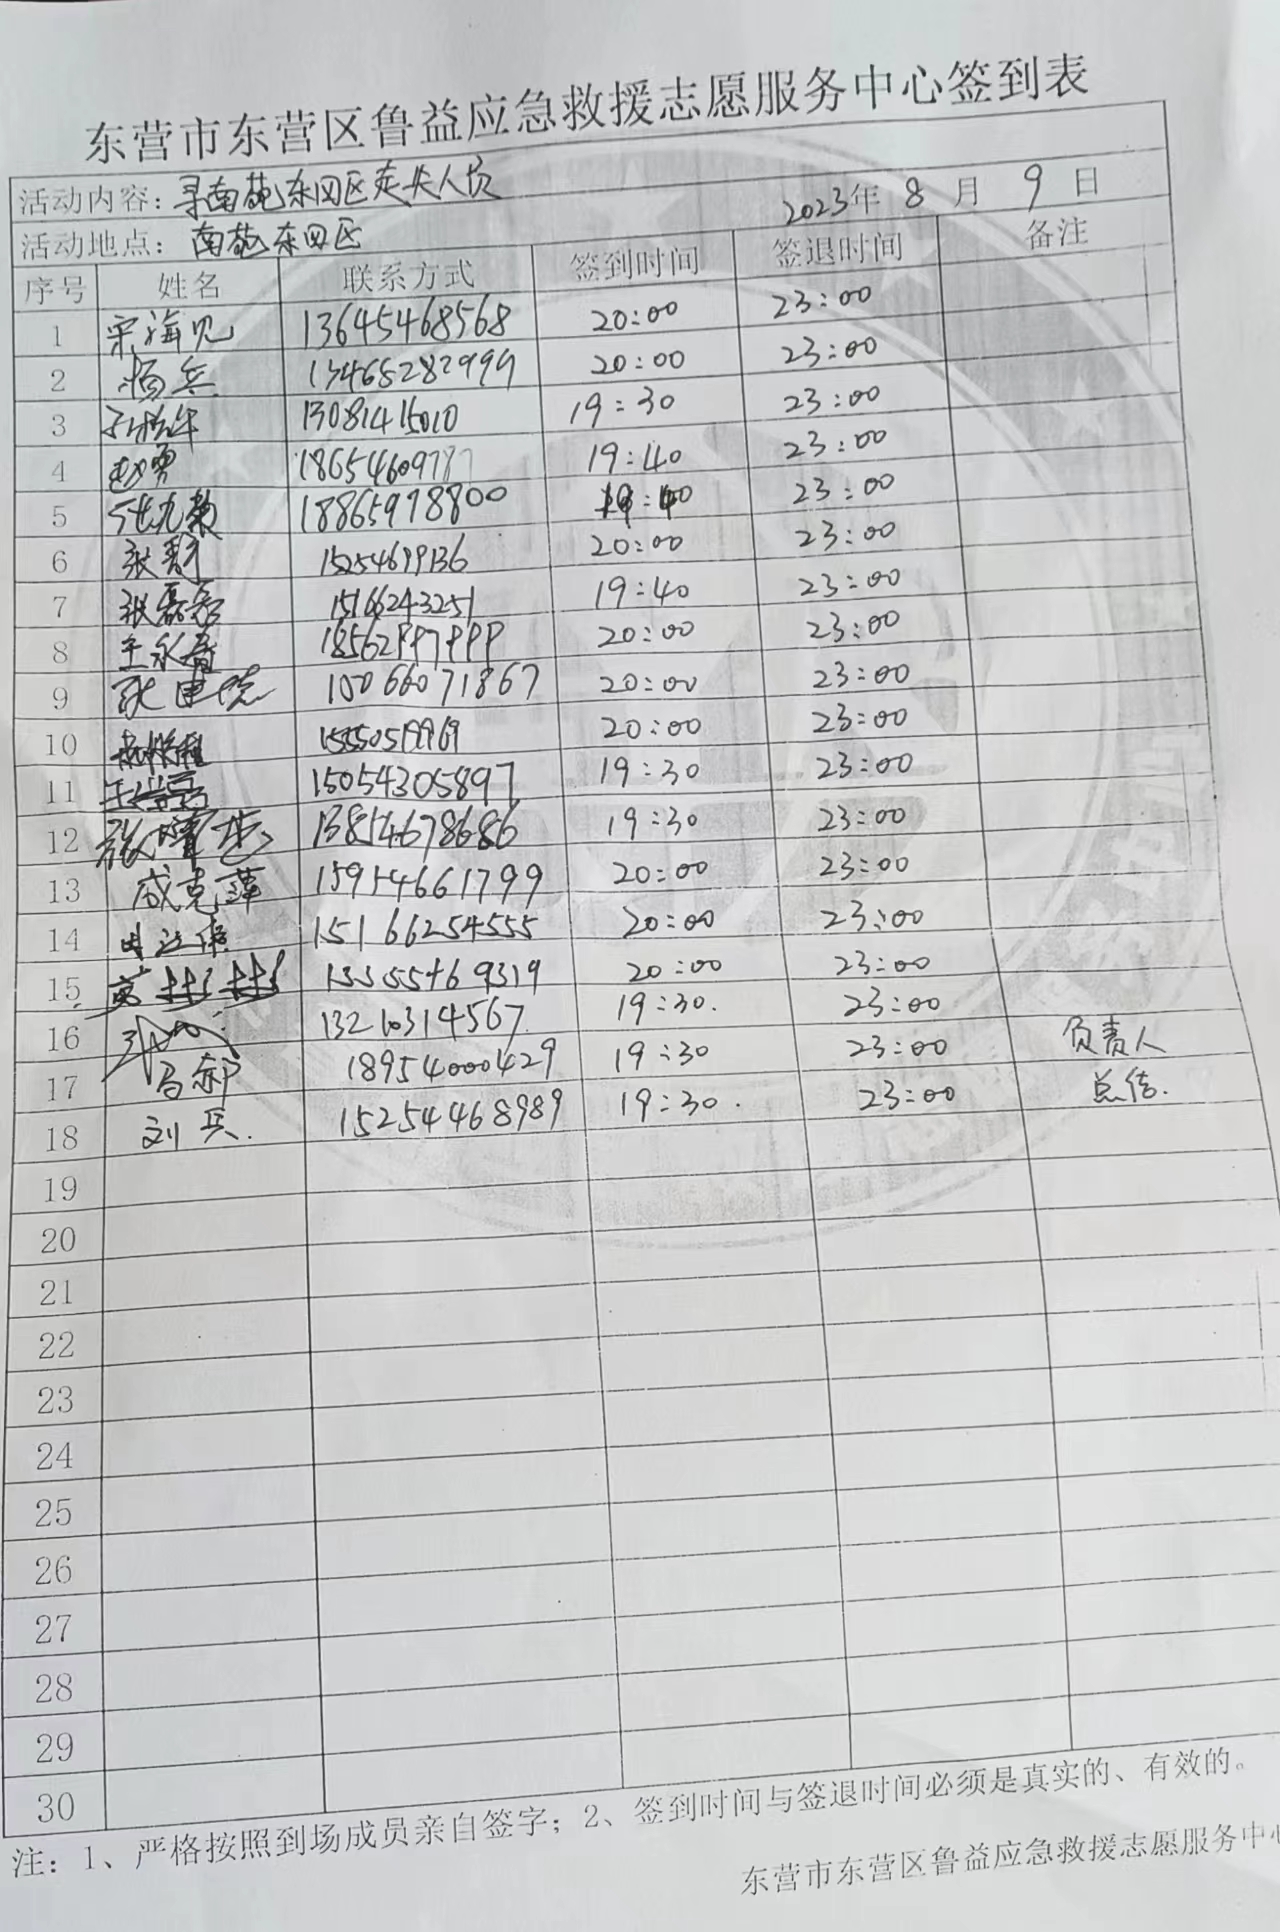 东营市东营区鲁益应急救援志愿服务中心签到表
活动内容：寻南苑东四区走失人员 2023年 8 月 9 日
活动地点：南苑东四区
序号 姓名 联系方式 签到时间 签退时间 备注
1 宋海见 13645468568 20:00 23:00
2 杨兵 13465282999 20:00 23:00
3 13081415010 19:30 23:00
4 赵勇 18654609787 19:40 23:00
5 张九菊 18865978800 19:40 23:00
6 张 15254699136 20:00 23:00
7 张磊 15166243251 19:40 23:00
8 王永春 18562997999 20:00 23:00
9 耿建 15066071867 20:00 23:00
10 15550519969 20:00 23:00
11 15054305897 19:30 23:00
12 张 13854678686 19:30 23:00
13 成克萍 15954661799 20:00 23:00
14 15166254555 20:00 23:00
15 黄彬彬 13355469319 20:00 23:00
16 13210314567 19:30. 23:00
17 马郝 18954000429 19:30 23:00 负责人
18 刘兵. 15254468989 19:30. 23:00 总结.
19
20
21
22
23
24
25
26
27
28
29
30
注：1、严格按照到场成员亲自签字；2、签到时间与签退时间必须是真实的、有效的。
东营市东营区鲁益应急救援志愿服务中心